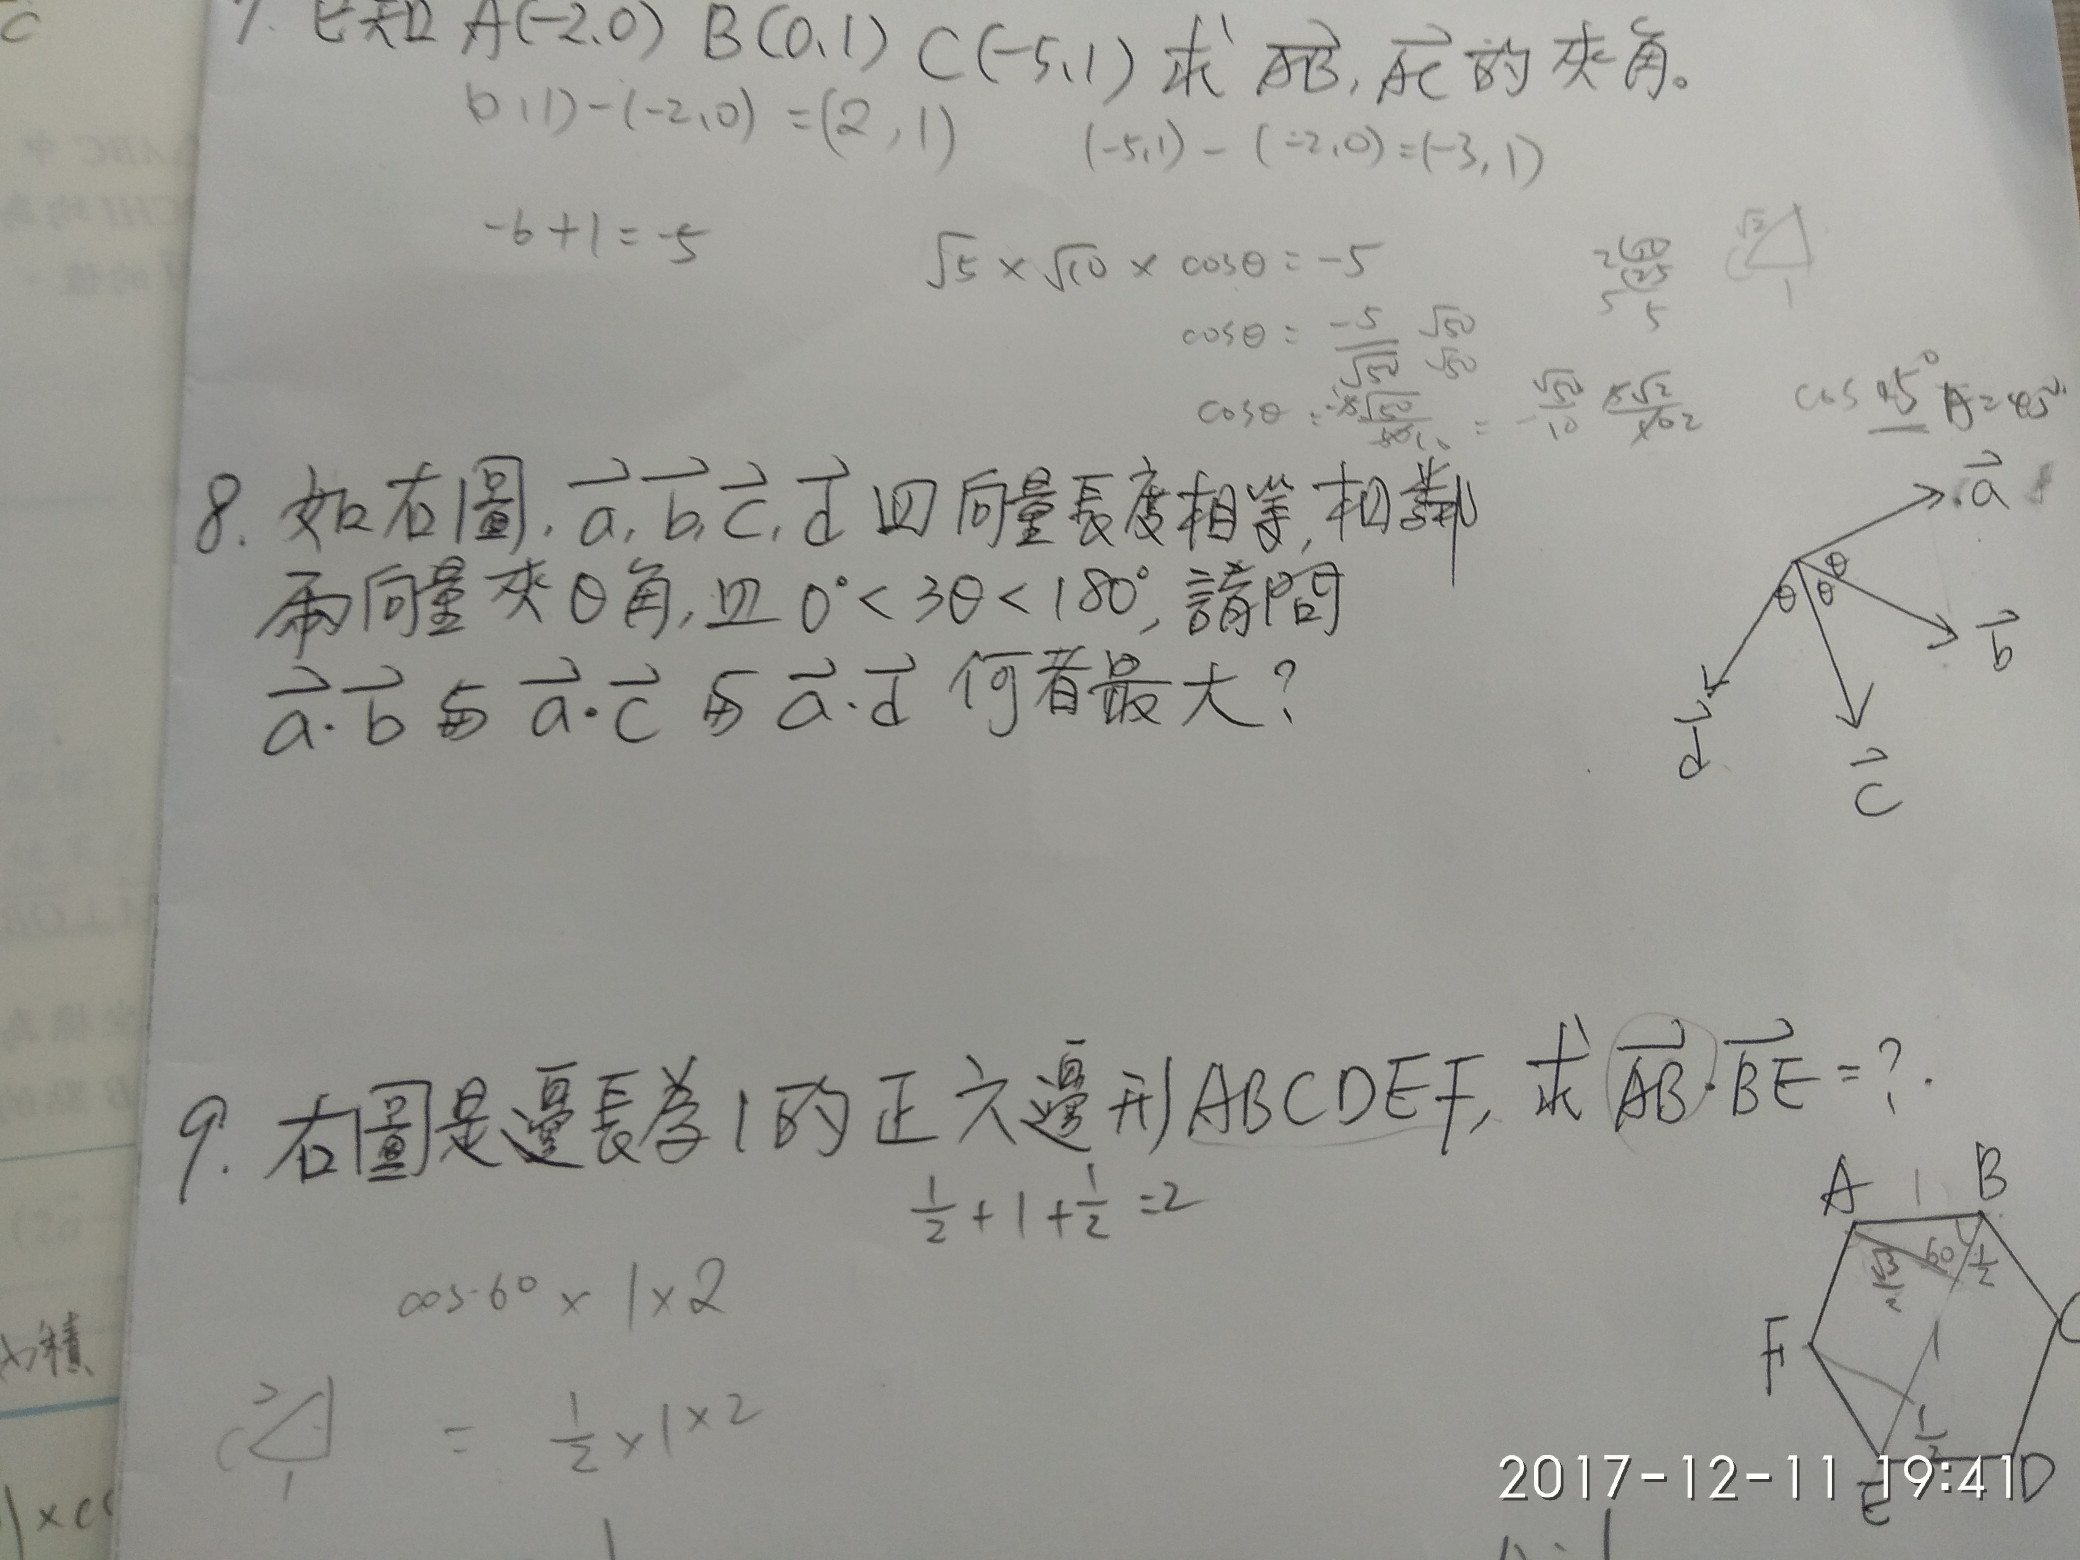 C
7. 已知 A(-2,0) B(0,1) C(-5,1) 求 AB, AC 的夾角。
0,1)-(-2,0)=(2,1)
(-5,1)-(-2,0)=(-3,1)
-6+1=-5
√5×√10×cosθ=-5
cosθ= -5/√50 √50/√50
cosθ=
cos 45°
8. 如右圖, a, b, c, d 四向量長度相等, 相鄰
兩向量夾θ角, 且 0°<3θ<180°, 請問
a·b 與 a·c 與 a·d 何者最大?
a
θ
θ θ
b
d
c
9. 右圖是邊長為1的正六邊形ABCDEF, 求 AB·BE=?.
1/2+1+1/2=2
cos60×1×2
= 1/2×1×2
A 1 B
√3/2 60 1/2
F 1 C
1/2
E D
2017-12-11 19:41
積